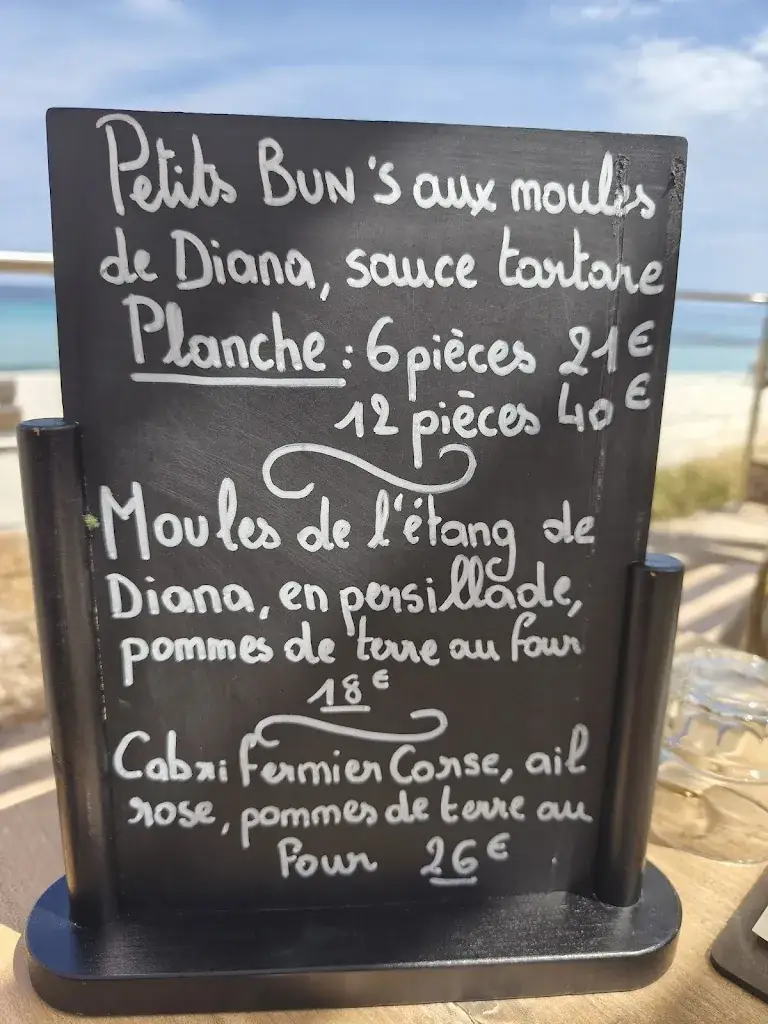 Petits BUN'S aux moules
de Diana, sauce tartare
Planche : 6 pièces 21€
12 pièces 40€
Moules de l'étang de
Diana, en persillade,
pommes de terre au four
18€
Cabri fermier Corse, ail
rose, pommes de terre au
four 26€